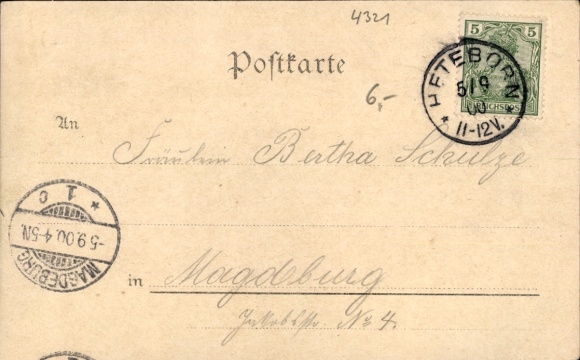 4321
5
REICHSPOST
HETEBORN
5/9
00
11-12V.
Postkarte
6,-
An
Fräulein Bertha Schulze
* 1 c
-5.9.00.4-5N.
MAGDEBURG
in Magdeburg
Jakobstr. No 4.